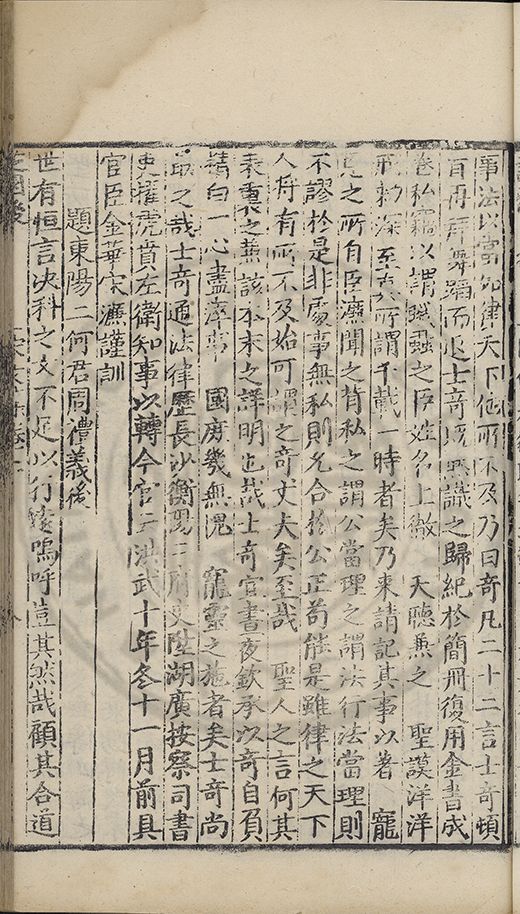 事法以當如律天下他所不及乃曰奇凡二十二言士奇頓
首再拜舞蹈而退士奇既興識之歸紀於簡冊復用金書成
卷私竊以謂螻蟲之臣姓名上徹　天聽燕之　聖謨洋洋
至真所謂千載一時者矣乃来請記其事以著　寵
之所自臣濂聞之背私之謂公當理之謂法行法當理則
不謬於是非處事無私則允合於公正苟能是雖律之天下
人將有所不及始可謂之奇丈夫矣至哉　聖人之言何其
表裏之兼該本末之詳明也哉士奇官晝夜欽承以奇自負
精白一心盡瘁事　國庶幾無愧　寵靈之施者矣士奇尚
之哉士奇通法律歷長沙衡陽二府史陞湖廣按察司書
吏擢虎賁左衛知事以轉今官云洪武十年冬十一月前具
官臣金華宋濂謹訓
題東陽二何君周禮義後
世有恒言决科之文不足以行遠嗚呼豈其然哉顧其合道
芝園後